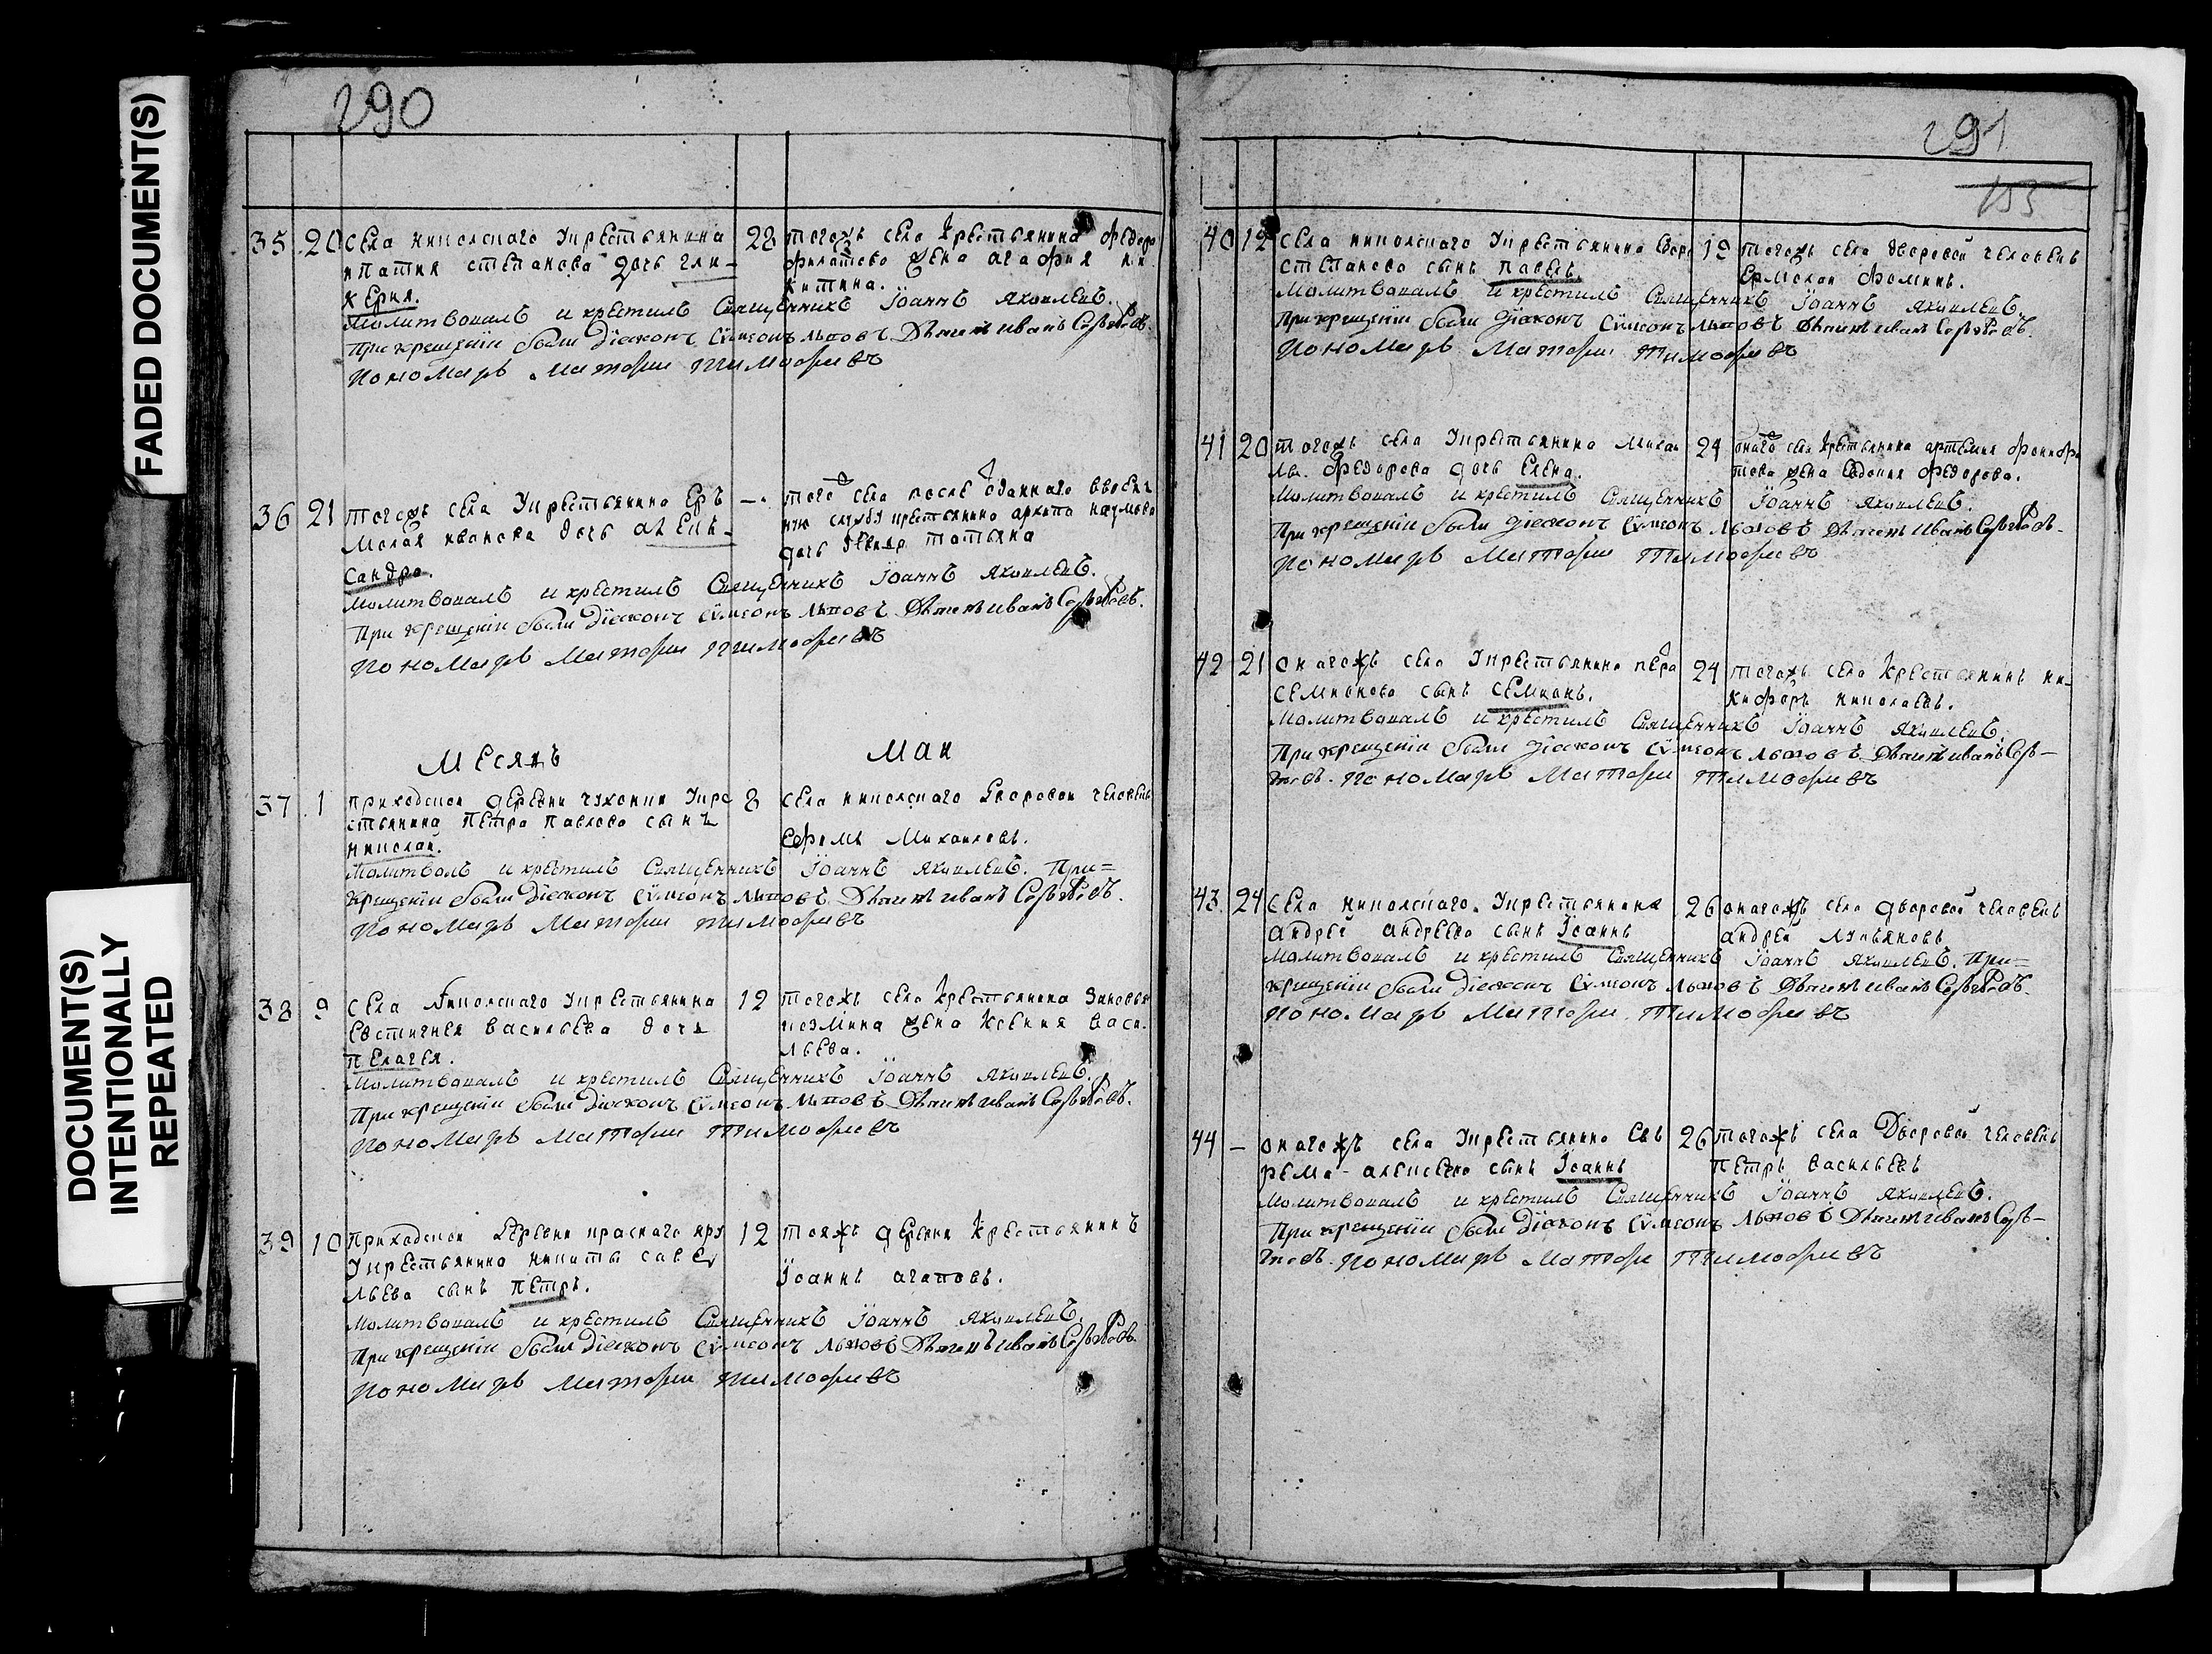 FADED DOCUMENT(S)
DOCUMENT(S)
INTENTIONALLY
REPEATED
290
35 20 Села никольскаго Укрестьянина
ипатия степанова дочь гли-
керия.
28 тогожъ села крестьянина федора
филатова жена агафия ни
китина.
Молитвовалъ и крестилъ Священникъ Iоаннъ Яковлевъ.
При крещении были дiяконъ Сѵмеонъ Львовъ Дьячекъ иванъ
пономарь Матфеи тимофеевъ
36 21 тогожъ села Укрестьянина Ер
молая иванова дочь алеκ-
сандра.
—. того села после отданнаго ввоен
ную службу крестьянина архипа наумова
дочь девица татьяна
молитвовалъ и крестилъ Священникъ Iоаннъ Яковлевъ.
При крещении были дiяконъ Сѵмеонъ Львовъ Дьячекъ иванъ
пономарь Матфеи тимофеевъ
Месяцъ Маи
37 1 приходской деревни Укре
стьянина Петра павлова сынъ
николай.
8 села никольскаго дворовои человекъ
Ефремъ Михаиловъ.
Молитвовалъ и крестилъ Священникъ Iоаннъ Яковлевъ. При=
крещении были дiяконъ Сѵмеонъ Львовъ Дьячекъ иванъ
пономарь Матфеи тимофеевъ
38 9 села Никольскаго Укрестьянина
Евстигнея васильева дочь
пелагея.
12 тогожъ села крестьянина Зиновья
козмина жена Ксения васи-
льева.
Молитвовалъ и крестилъ Священникъ Iоаннъ Яковлевъ.
При крещении были дiяконъ Сѵмеонъ Львовъ Дьячекъ иванъ
пономарь Матфеи Тимофеевъ
39 10 Приходской деревни краснаго яру
Укрестьянина никиты саве
льева сынъ петръ.
12 тояжъ деревни крестьянинъ
Iоаннъ агаповъ.
Молитвовалъ и крестилъ Священникъ Iоаннъ Яковлевъ.
При крещении были дiяконъ Сѵмеонъ Львовъ Дьячекъ иванъ
пономарь Матфеи тимофеевъ
291
153
40 12 села никольскаго Укрестьянина
степанова сынъ павелъ.
19 тогожъ села дворовой человекъ
Ермолаи фоминъ.
Молитвовалъ и крестилъ Священникъ Iоаннъ Яковлевъ.
При крещении были дiяконъ Сѵмеонъ Львовъ Дьячекъ иванъ
пономарь Матфеи тимофеевъ
41 20 тогожъ села Укрестьянина Михаи
лы федорова дочь Елена.
24 онаго села крестьянина артемия
жена Евдокия федорова.
Молитвовалъ и крестилъ Священникъ Iоаннъ Яковлевъ.
При крещении были дiяконъ Сѵмеонъ Львовъ Дьячекъ Иванъ
пономарь Матфеи Тимофеевъ
42 21 онагожъ села Укрестьянина петра
семионова сынъ семионъ.
24 тогожъ села Крестьянинъ ни-
кифоръ николаевъ.
Молитвовалъ и крестилъ Священникъ Iоаннъ Яковлевъ.
При крещении были дiяконъ Сѵмеонъ Львовъ Дьячекъ иванъ
пономарь Матфеи Тимофеевъ
43. 24 села никольскаго. Укрестьянина
андрея андреева сынъ Iоаннъ
26 онагожъ села дворовой человекъ
андрей лукьяновъ
Молитвовалъ и крестилъ Священникъ Iоаннъ Яковлевъ. При=
крещении были дiяконъ Сѵмеонъ Львовъ Дьячекъ иванъ
пономарь Матфеи. Тимофеевъ
44 — онагожъ села Укрестьянина Еф
рема алексеева сынъ Iоаннъ
26 тогожъ села Дворовой человекъ
петръ васильевъ
Молитвовалъ и крестилъ Священникъ Iоаннъ Яковлевъ.
При крещении были дiяконъ Сѵмеонъ Львовъ Дьячекъ иванъ
пономарь Матфеи Тимофеевъ